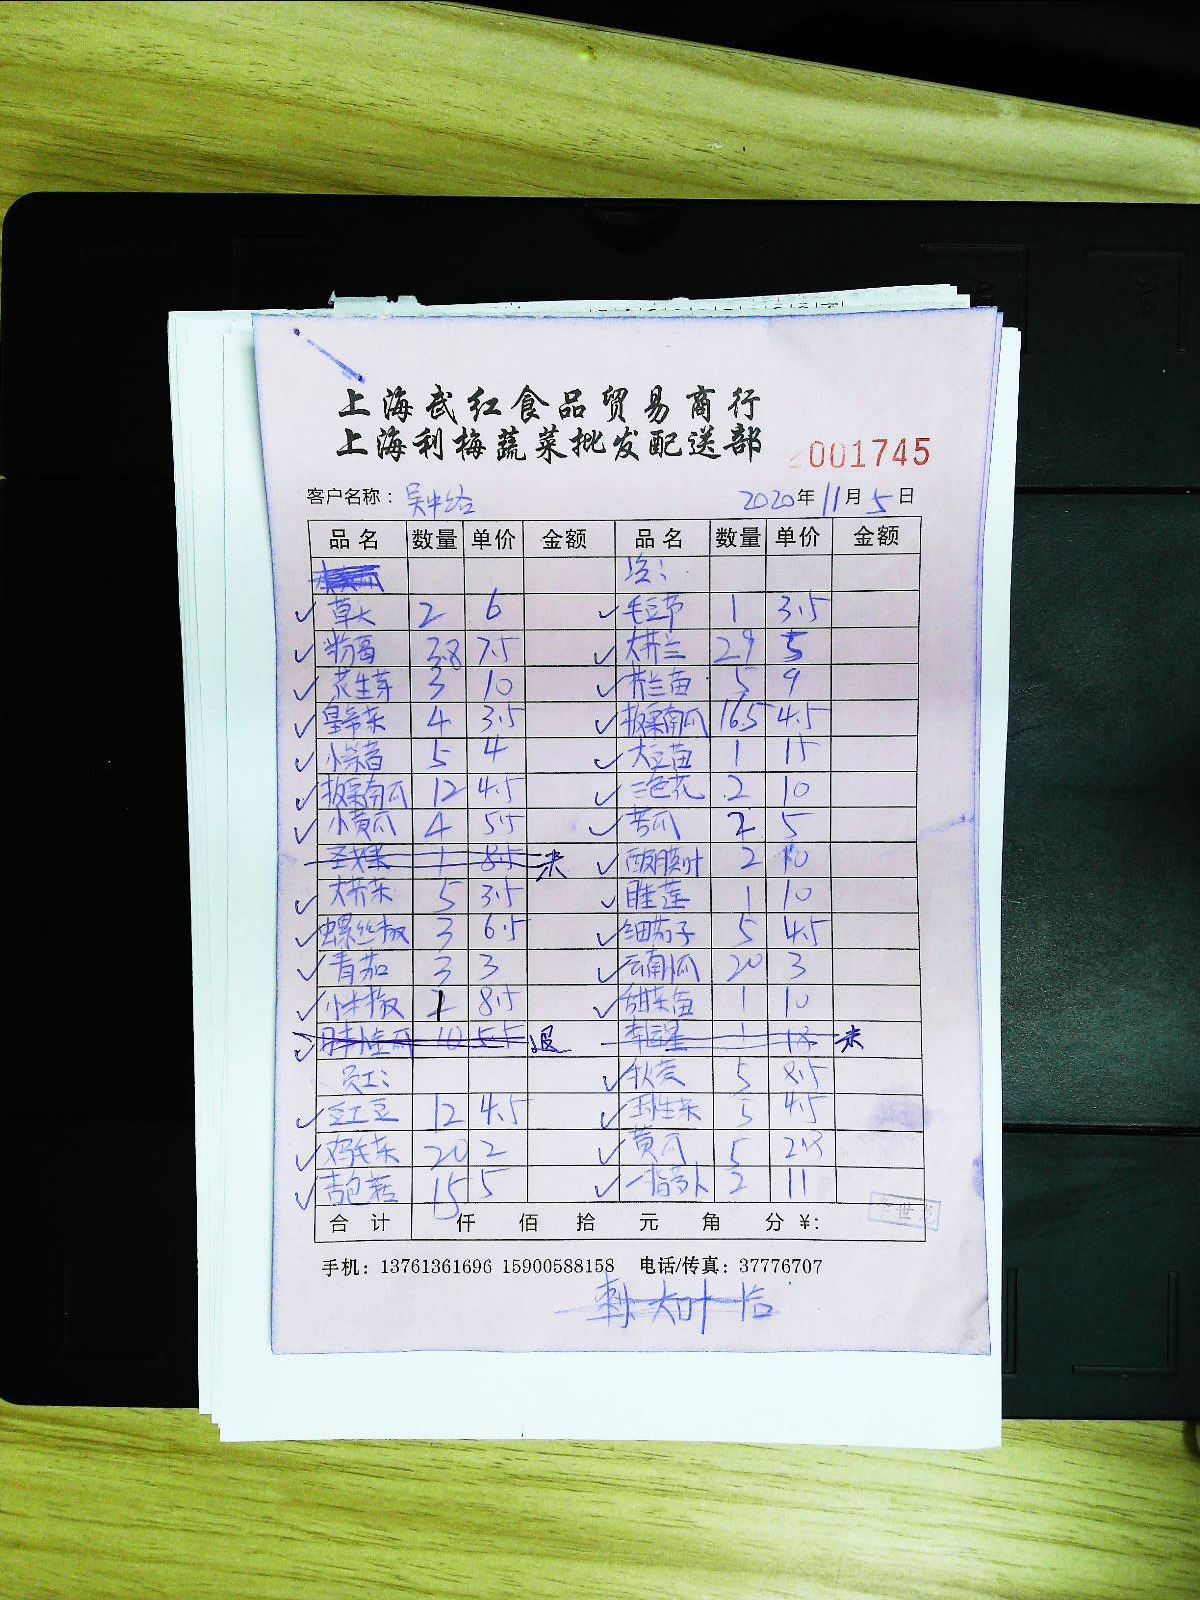 上海武红食品贸易商行
上海利梅蔬菜批发配送部
001745
客户名称：吴中路 2020年11月5日
品名 数量 单价 金额 品名 数量 单价 金额
草大 2 6 毛豆节 1 3.5
38 7.5 大芥兰 29 5
花生芽 3 10 芥兰苗 5 9
皇帝菜 4 3.5 板栗南瓜 16.5 4.5
小棠菜 5 4 大豆苗 1 15
板栗南瓜 12 4.5 三色花 2 10
小黄瓜 4 5.5 苦瓜 2 5
圣女果 1 8.5 未 2 10
大芥菜 5 3.5 睡莲 1 10
螺丝椒 3 6.5 细茄子 5 4.5
青茄 3 3 云南小瓜 20 3
小米椒 1 8.5 甜菜苗 1 10
10 5.5 退 1 13 未
员工： 秋葵 5 8.5
豇豆 12 4.5 玉生菜 5 4.5
鸡毛菜 20 2 黄瓜 5 2.8
杏鲍菇 15 5 一指萝卜 2 11
合计 仟 佰 拾 元 角 分 ¥:
手机：13761361696 15900588158 电话/传真：37776707